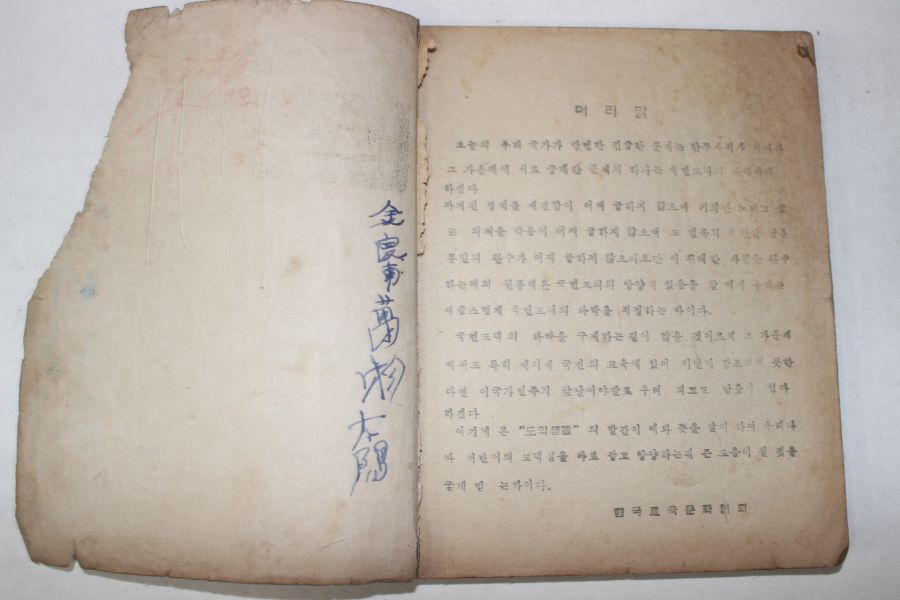 金
萬
物
太陽
머리말
오늘의 우리 국가가 당면한 긴급한 문제는
그 가운데에 서로 중대한 문제의 하나는 국민도의의
하겠다
파괴된 경제를 재건함이 어찌 급하지 않으며
는 외적을 막음이 어찌 급하지 않으며 또 민족의
통일의 완수가 어찌 급하지 않으리오만 이 위대한 사업을 완수
하는데의 원동력은 국민도의의 앙양에 있음을 알 때에 우리는
새삼스럽게 국민도덕의 타락을 걱정하는 바이다.
국민도덕의 타락을 구제하는 길이 많을 것이로되 그 가운데
에서도 특히 제이세 국민의 교육에 있어 이런이 강조되지 못한
다면 이 국가민족의 앞날이야말로 우려 되고도 남음이 있다
하겠다
여기에 본 “도의생활” 의 발간이 때와 뜻을 같이 하여 우리나
라 어린이의 도덕심을 바로 잡고 앙양하는데 큰 도움이 될 것을
굳게 믿 는바이다.
한국교육문화협회